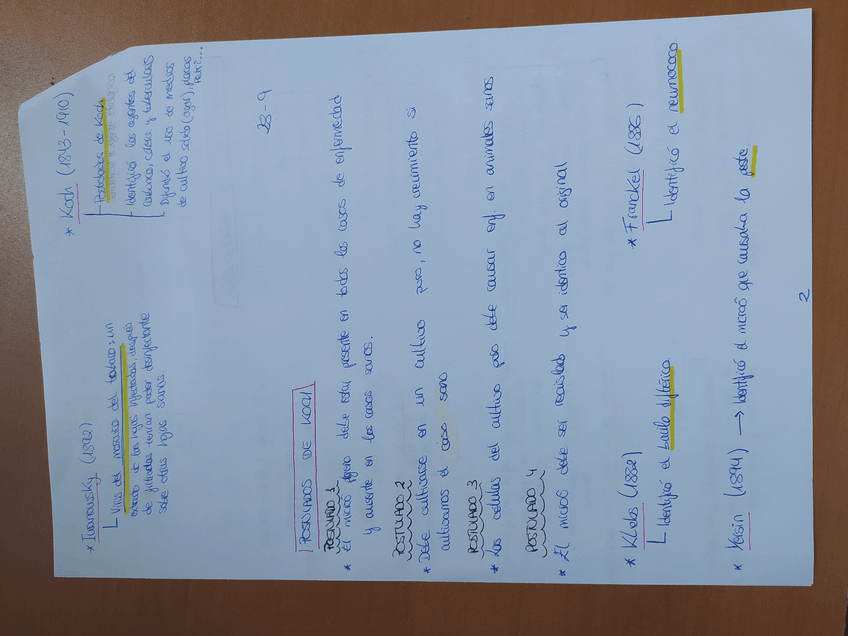 * Iwanowsky (1892)
Virus del mosaico del tabaco: un
extracto de las hojas infectadas, después
de filtradas tenían poder desinfectante
sobre otras hojas sanas
* Koch (1843-1910)
Postulados de Koch
Identificó los agentes del
carbunco, cólera y tuberculosis
Difundió el uso de medios
de cultivo sólido (agar), placas
Petri...
23-9
POSTULADOS DE KOCH
POSTULADO 1
* El microó debe estar presente en todos los casos de enfermedad
y ausente en los casos sanos.
POSTULADO 2
* Debe cultivarse en un cultivo puro, no hay crecimiento si
cultivamos el caso sano
POSTULADO 3
* Las células del cultivo puro debe causar enf en animales sanos
POSTULADO 4
* El microó debe ser reaislado y ser idéntico al original
* Klebs (1882)
Identificó el bacilo diftérico.
* Franckel (1886)
Identificó el neumococo.
* Yeisin (1894) → Identificó el microó que causaba la peste
2